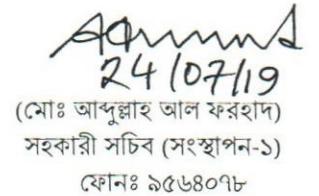 24/07/19
(মোঃ আব্দুল্লাহ আল ফরহাদ)
সহকারী সচিব (সংস্থাপন-১)
ফোনঃ ৯৫৬৪০৭৮